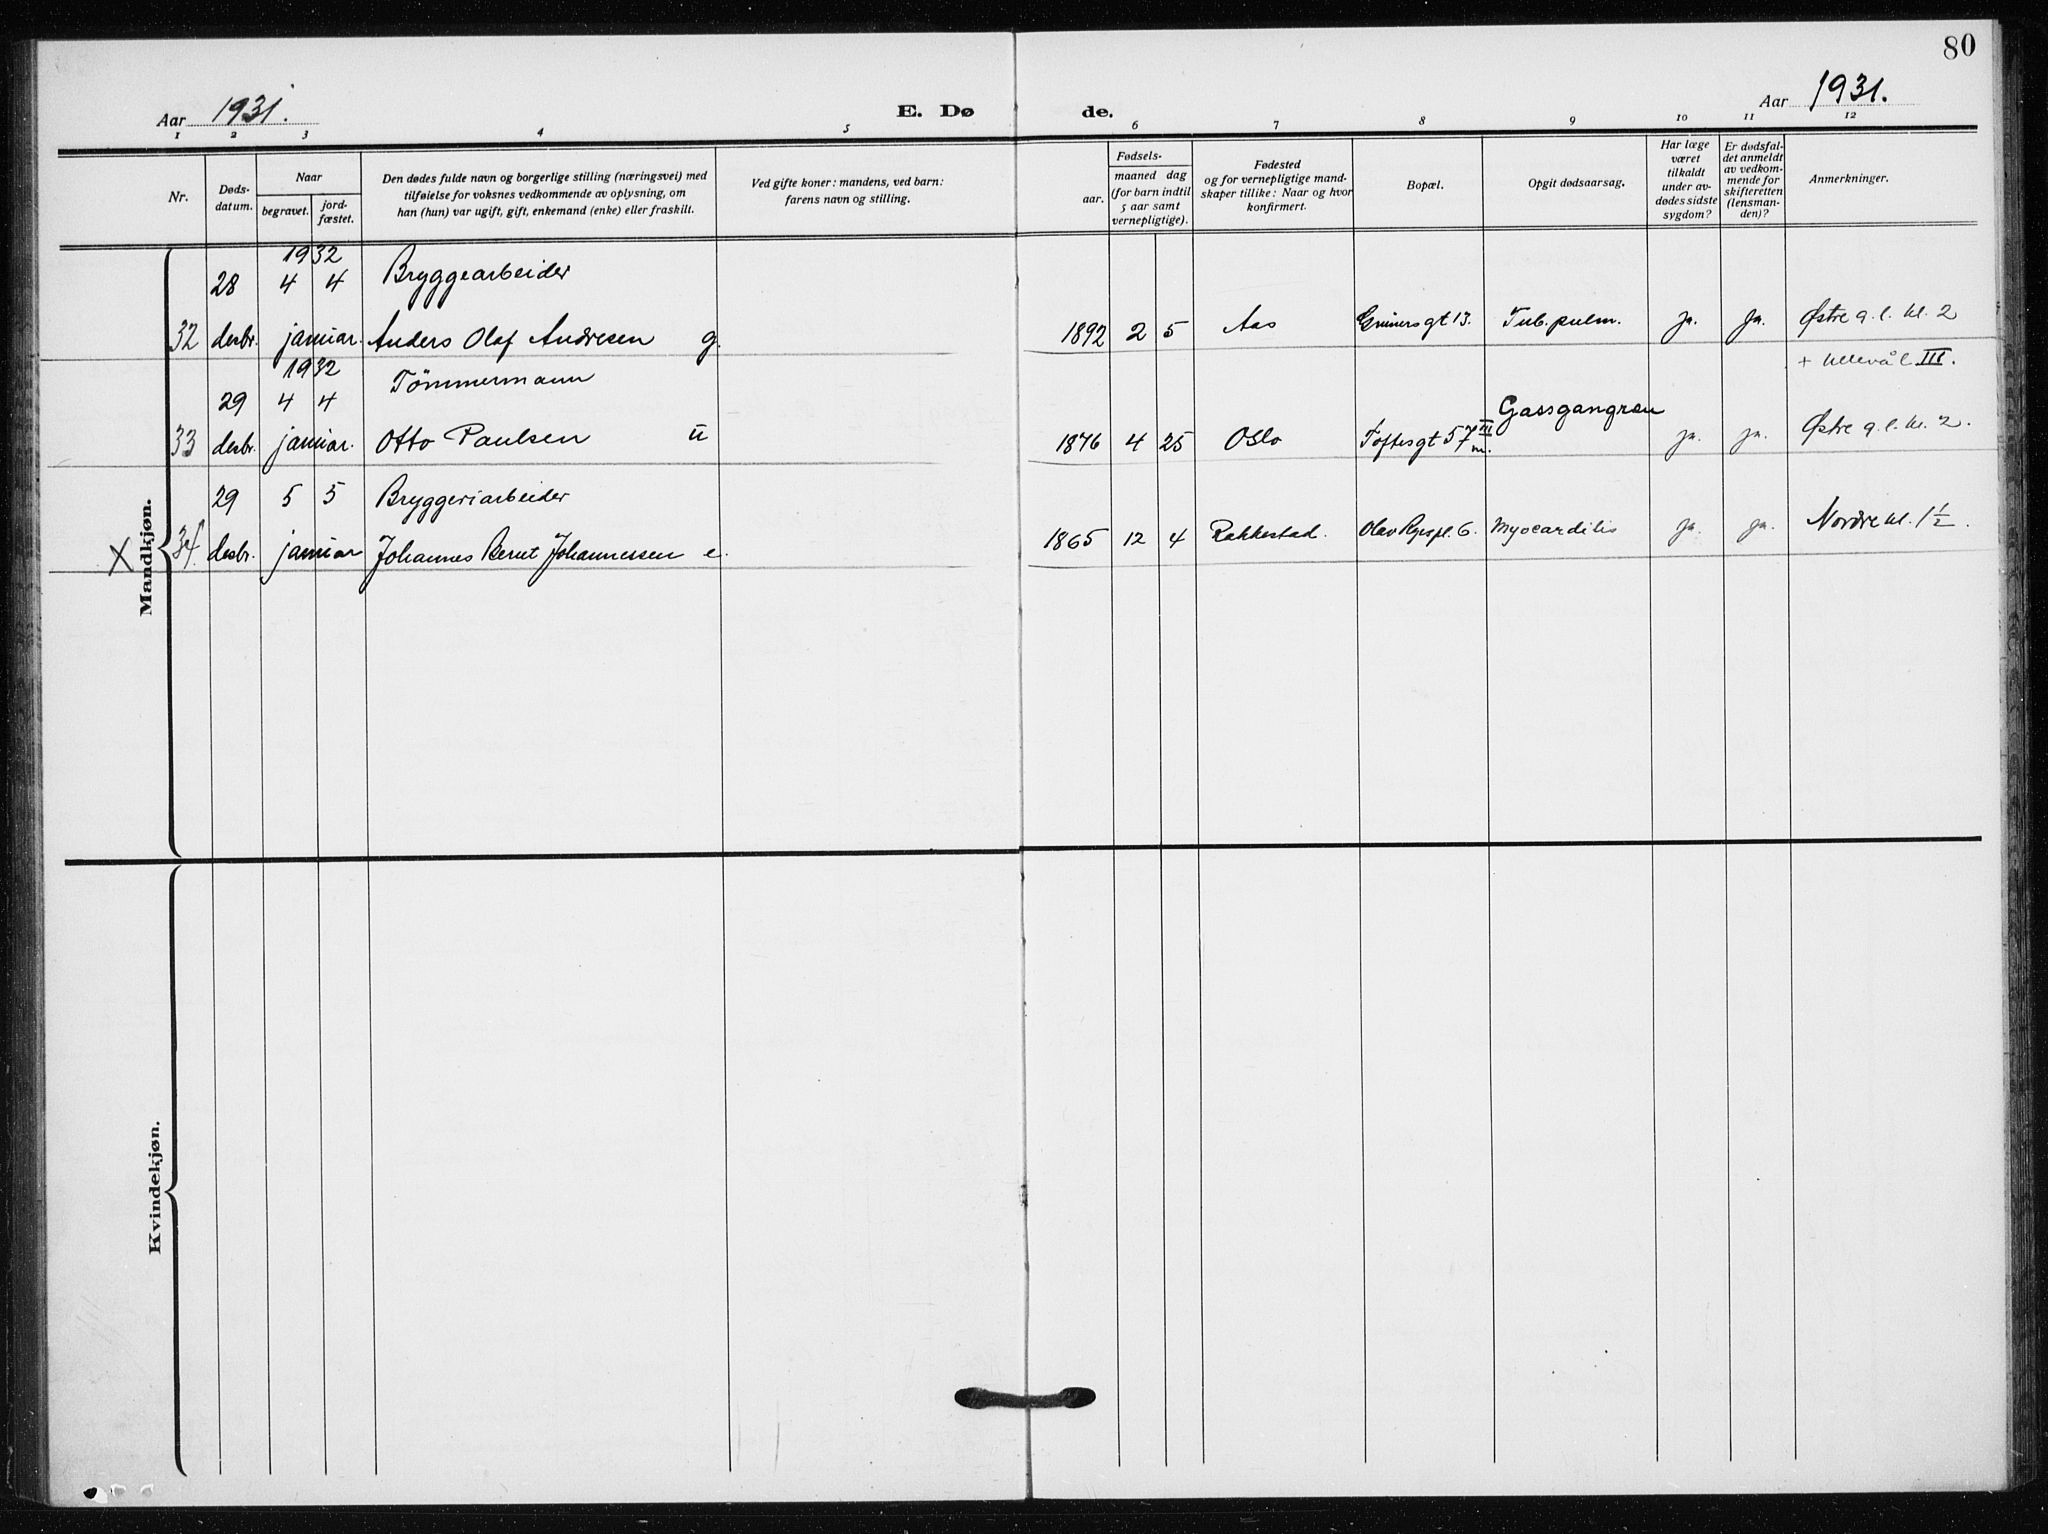 80
Aar 1931. E. Dø de. Aar 1931.
1 2 3 4 5 6 7 8 9 10 11 12
Nr.
Døds-
datum.
Naar
begravet.
jord-
fæstet.
Den dødes fulde navn og borgerlige stilling (næringsvei) med
tilføielse for voksnes vedkommende av oplysning, om
han (hun) var ugift, gift, enkemand (enke) eller fraskilt.
Ved gifte koner: mandens, ved barn:
farens navn og stilling.
Fødsels-
aar.
maaned dag
(for barn indtil
5 aar samt
vernepligtige).
Fødested
og for vernepligtige mand-
skaper tillike: Naar og hvor
konfirmert.
Bopæl.
Opgit dødsaarsag.
Har læge
været
tilkaldt
under av-
dødes sidste
sygdom?
Er dødsfal-
det anmeldt
av vedkom-
mende for
skifteretten
(lensman-
den)?
Anmerkninger.
Mandkjøn.
1932
28 4 4 Bryggearbeider
32 desbr. januar. Anders Olaf Andresen g. 1892 2 5 Aas Grünersgt 13. Tub. pulm. ja. ja. Østre g. l. kl. 2
+ Ullevål III.
1932
29 4 4 Tømmermann
33 desbr. januar. Otto Paulsen u 1876 4 25 Oslo Toftesgt 57 III m. Gassgangren ja. ja. Østre g. l. kl. 2.
29 5 5 Bryggeriarbeider
X 34. desbr. januar Johannes Bernt Johannessen e. 1865 12 4 Rakkestad. Olav Ryespl. 6. Myocarditis ja. ja. Nordre kl. 1 1/2.
Kvindekjøn.